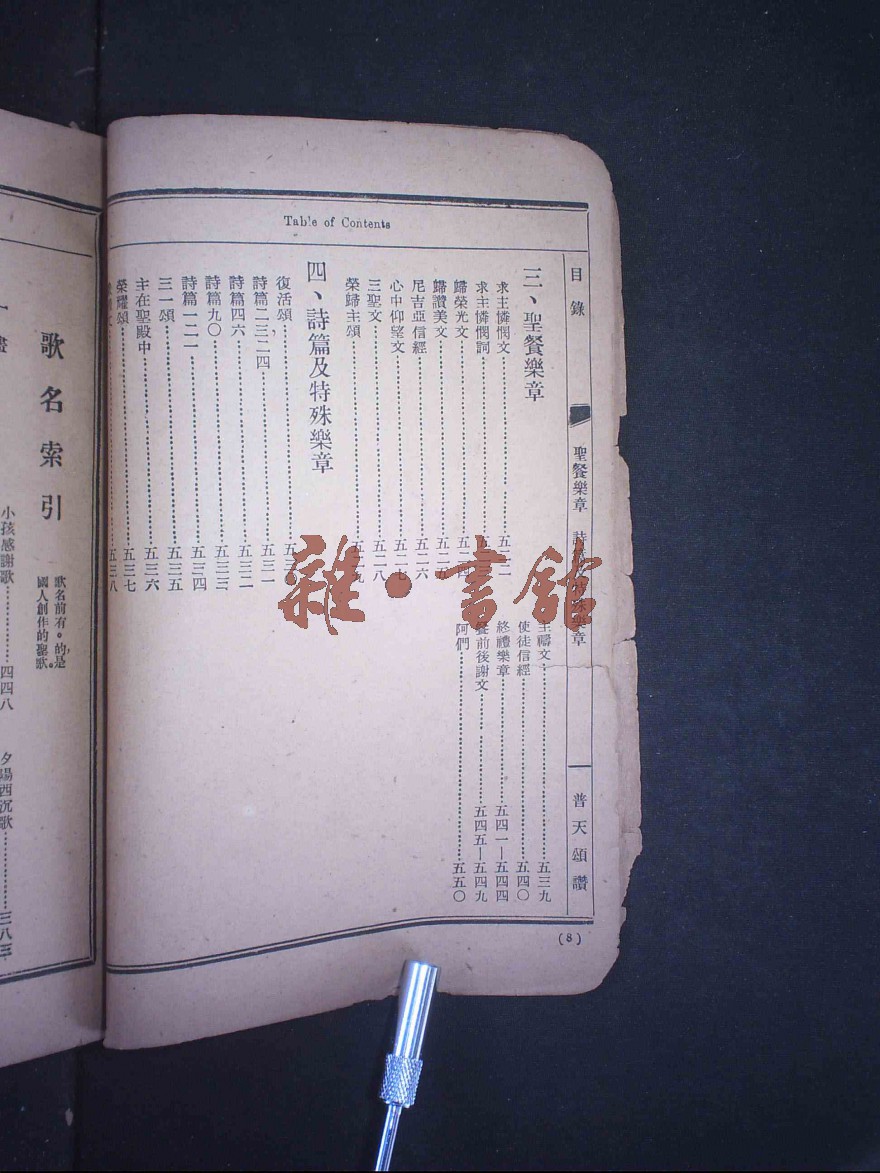 Table of Contents
目錄
聖餐樂章
特殊樂章
普天頌讚
(8)
三、聖餐樂章
求主憐憫文
求主憐憫詞
歸榮光文
歸讚美文
尼吉亞信經……五二六
心中仰望文……五二七
三聖文……五二八
榮歸主頌
四、詩篇及特殊樂章
復活頌
詩篇二三,二四……五三一
詩篇四六……五三二
詩篇九〇……五三三
詩篇一二一……五三四
三一頌……五三五
主在聖殿中……五三六
榮耀頌……五三七
五三八
主禱文……五三九
使徒信經……五四〇
終禮樂章……五四一—五四四
餐前後謝文……五四五—五四九
阿們……五五〇
雜·書館
歌名索引
歌名前有。的,是
國人創作的聖歌。
畫
小孩感謝歌……四四八
夕陽西沉歌……三八三